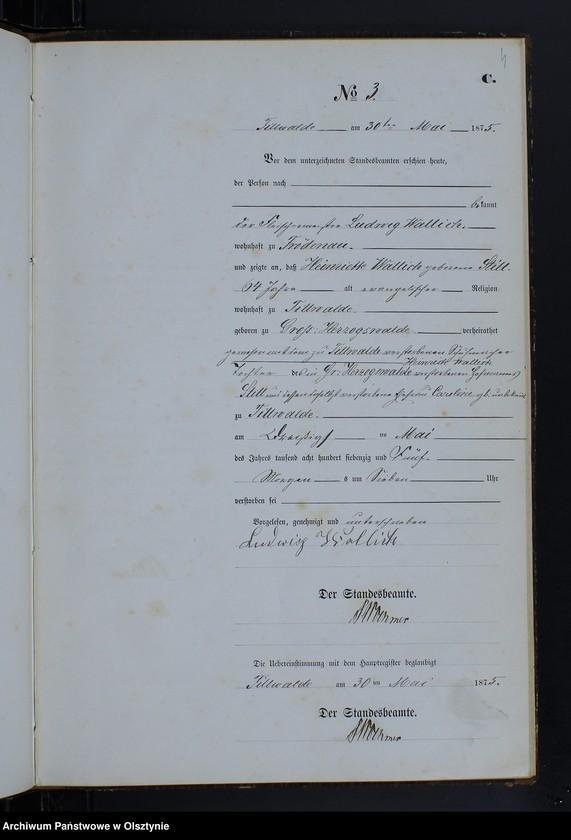 4
C.
No 3.
Tillwalde am 30ten Mai 1875.
Vor dem unterzeichneten Standesbeamten erschien heute,
der Person nach
bekannt
der Fleischermeister Ludwig Wallich
wohnhaft zu Frödenau
und zeigte an, daß Heinriette Wallich geborene Still
64 Jahre alt evangelischer Religion
wohnhaft zu Tillwalde
geboren zu Gross: Herzogswalde verheirathet
gewesen mit dem zu Tillwalde verstorbenen
Heinrich Wallich
Tochter des in Gr: Herzogswalde verstorbenen
Still und dessen daselbst verstorbene Ehefrau Caroline gb: unbekannt
zu Tillwalde
am Dreißig Mai
des Jahres tausend acht hundert siebenzig und Fünf
Morgens um Sieben Uhr
verstorben sei
Vorgelesen, genehmigt und unterschrieben
Ludwig Wallich
Der Standesbeamte.
Die Uebereinstimmung mit dem Hauptregister beglaubigt
Tillwalde am 30ten Mai 1875.
Der Standesbeamte.
Archiwum Państwowe w Olsztynie